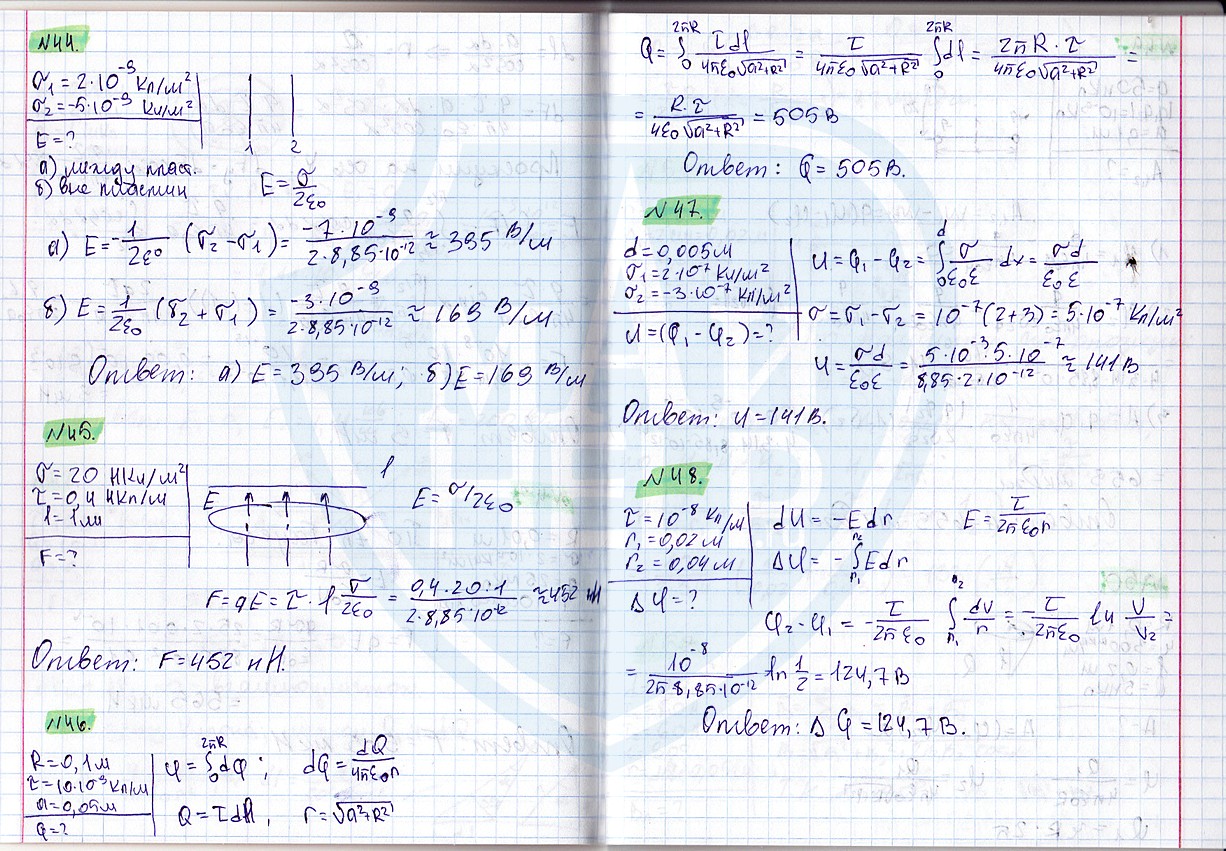 №44.
σ₁ = 2·10⁻⁹ Кл/м²
σ₂ = -5·10⁻⁹ Кл/м²
E = ?
а) между пласт.
б) вне пластин
1 2
E = σ/2ε₀
а) E = -1/2ε₀ (σ₂ - σ₁) = -7·10⁻⁹/2·8,85·10⁻¹² ≈ 395 В/м
б) E = 1/2ε₀ (σ₂ + σ₁) = -3·10⁻⁹/2·8,85·10⁻¹² ≈ 169 В/м
Ответ: а) E = 395 В/м; б) E = 169 В/м
№45.
σ = 20 нКл/м²
τ = 0,4 нКл/м
l = 1м
F = ?
E
l
E = σ/2ε₀
F = qE = τ · l σ/2ε₀ = 0,4·20·1/2·8,85·10⁻¹² ≈ 452 нН
Ответ: F = 452 нН.
№46.
R = 0,1 м
τ = 10·10⁻⁹ Кл/м
a = 0,05 м
φ = ?
φ = ∫₀²πᴿ dφ ; dφ = dQ/4πε₀r
Q = τdl , r = √a²+R²
φ = ∫₀²πᴿ τdl/4πε₀√a²+R² = τ/4πε₀√a²+R² ∫₀²πᴿ dl = 2πR·τ/4πε₀√a²+R² =
= R·τ/4ε₀√a²+R² = 505 В
Ответ: φ = 505 В.
№47.
d = 0,005 м
σ₁ = 2·10⁻⁷ Кл/м²
σ₂ = -3·10⁻⁷ Кл/м²
U = (φ₁ - φ₂) = ?
U = φ₁ - φ₂ = ∫₀ᵈ σ/ε₀ε dx = σd/ε₀ε
σ = σ₁ - σ₂ = 10⁻⁷(2+3) = 5·10⁻⁷ Кл/м²
U = σd/ε₀ε = 5·10⁻³·5·10⁻⁷/8,85·2·10⁻¹² ≈ 141 В
Ответ: U = 141 В.
№48.
τ = 10⁻⁸ Кл/м
r₁ = 0,02 м
r₂ = 0,04 м
Δφ = ?
dU = -Edr E = τ/2πε₀r
Δφ = -∫ᵣ₁ʳ² Edr
φ₂ - φ₁ = -τ/2πε₀ ∫ᵣ₁ʳ² dr/r = -τ/2πε₀ ln r/r₂ =
= 10⁻⁸/2π8,85·10⁻¹² ln 1/2 = 124,7 В
Ответ: Δφ = 124,7 В.